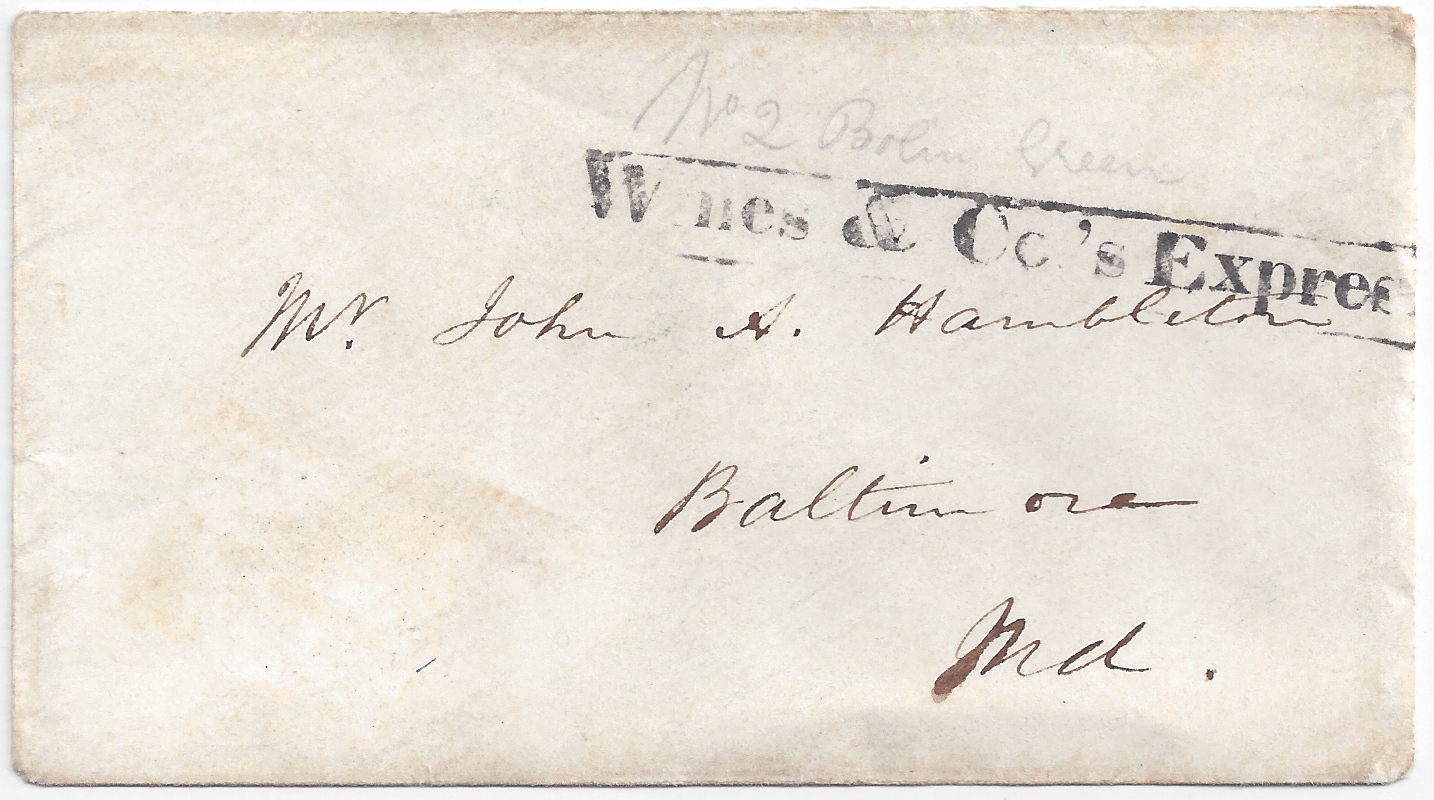 No 2 Bolin Green
Wines & Co.'s Expres
Mr. John A. Hambleton
Baltimore
Md.